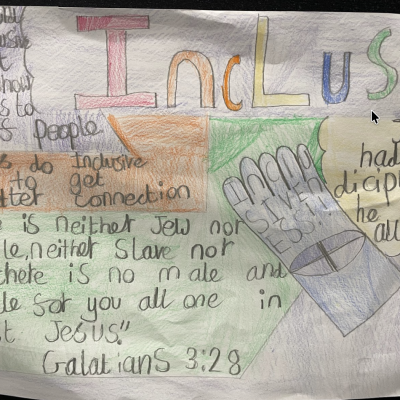 IncLuS
how
s to
s People
s do Inclusive
to get
tter connection
had
discipl
he
all
SIVEN
ESS!!
is neither Jew nor
le, neither Slave nor
there is no male and
le for you all one in
t Jesus."
Galatians 3:28